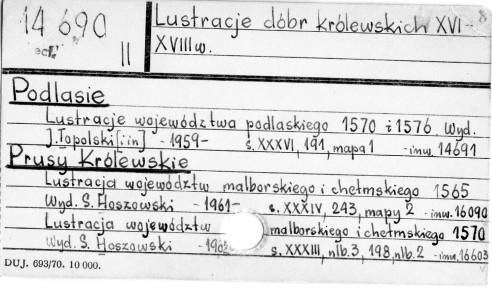 14 690
II
Lustracje dóbr królewskich XVI-
XVIII w.
8
Podlasie
Lustracje województwa podlaskiego 1570 i 1576. Wyd.
J. Topolski [i in] - 1959- s. XXXVI, 191, mapa 1 - inw. 14691
Prusy Królewskie
Lustracja województw malborskiego i chełmskiego 1565
Wyd. S. Hoszowski - 1961- s. XXXIV, 243, mapy 2 - inw. 16090
Lustracja województw malborskiego i chełmskiego 1570
Wyd. S. Hoszowski s. XXXIII, nlb. 3, 198, nlb. 2 - inw. 16603
DUJ. 693/70. 10 000.